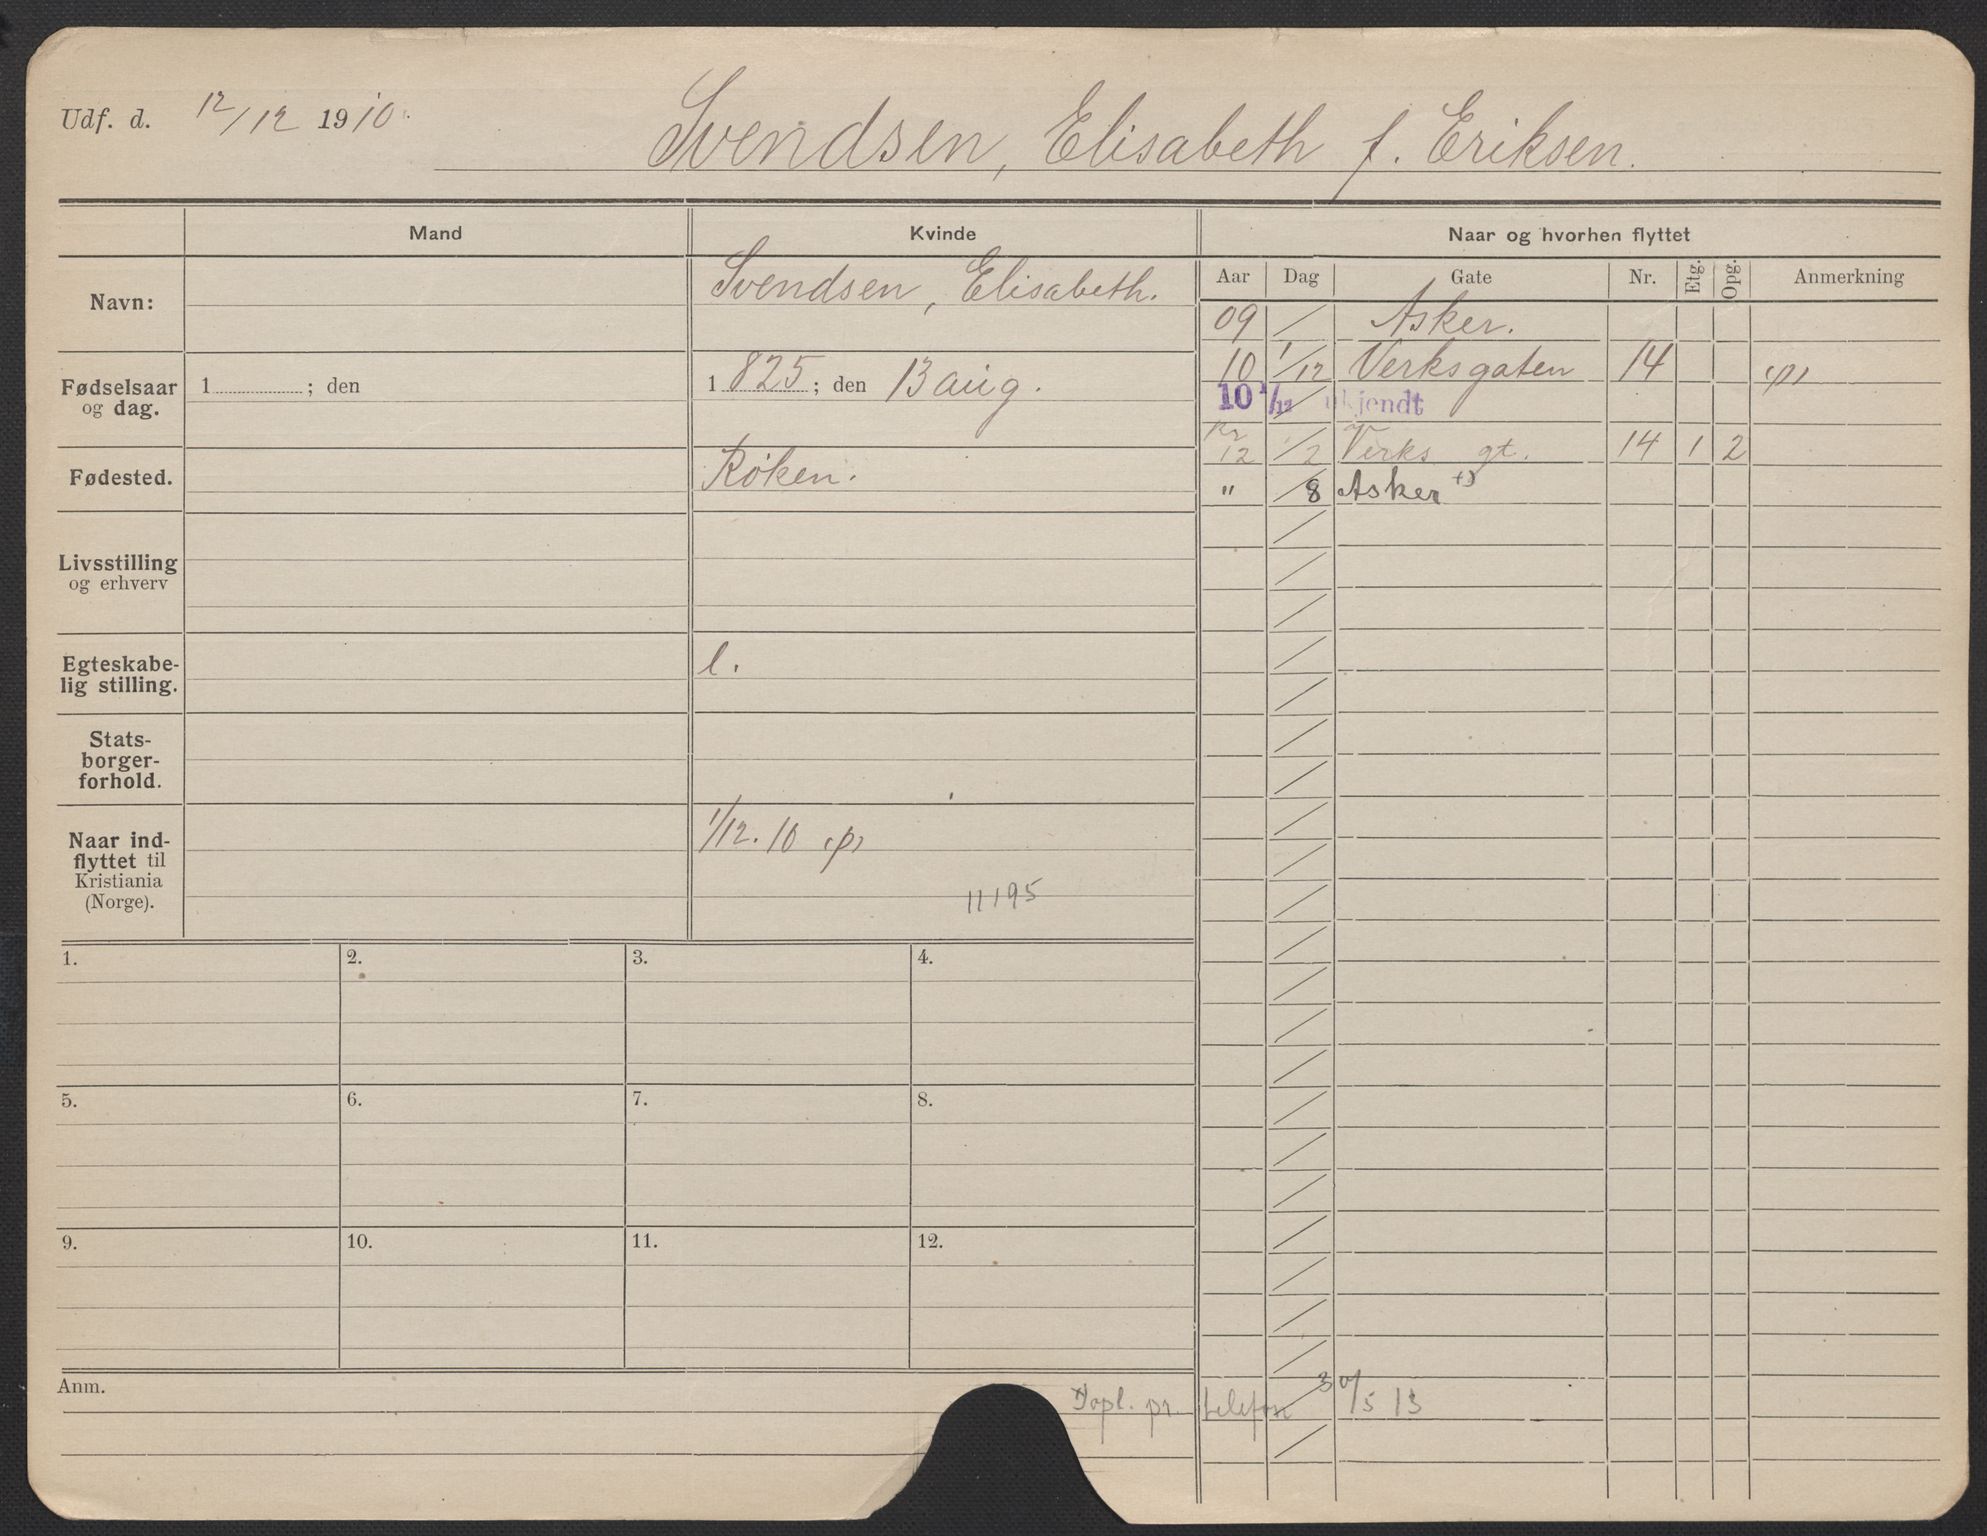 Udf. d. 12/12 1910.
Svendsen, Elisabeth f. Eriksen.
Mand
Kvinde
Naar og hvorhen flyttet
Aar Dag Gate Nr. Etg. Opg. Anmerkning
Navn:
Svendsen, Elisabeth.
Fødselsaar
og dag.
1 ; den
1825; den 13 aug.
Fødested.
Røken.
Livsstilling
og erhverv
Egteskabe-
lig stilling.
l.
Stats-
borger-
forhold.
Naar ind-
flyttet til
Kristiania
(Norge).
1/12. 10 (p)
11195
09 / Asker.
10 1/12 Verksgaten 14 (p)
10 1/12 ukjendt
Kr
12 1/2 Verks gt. 14 1 2
" /8 Asker
1. 2. 3. 4.
5. 6. 7. 8.
9. 10. 11. 12.
Anm.
Dopl. pr. telefon 30/5 13